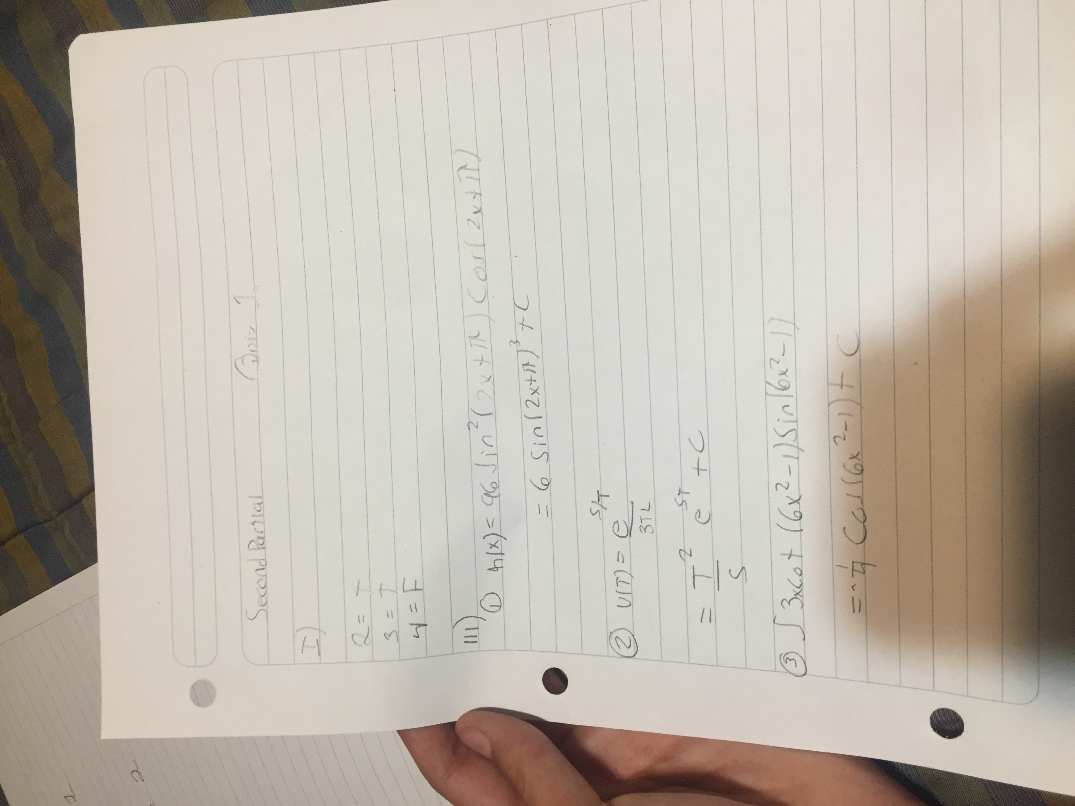 Second Parcial Quiz 1
I)
2 = T
3 = T
4 = F
III)
① h(x) = 96 Sin²(2x+π) Cos(2x+π)
= 6 Sin(2x+π)³ + C
② U(T) = e^5/T / 3TL
= T²/5 e^5T + C
③ ∫ 3xcot (6x²-1) Sin(6x²-1)
= -1/4 Cos(6x²-1) + C
2
2